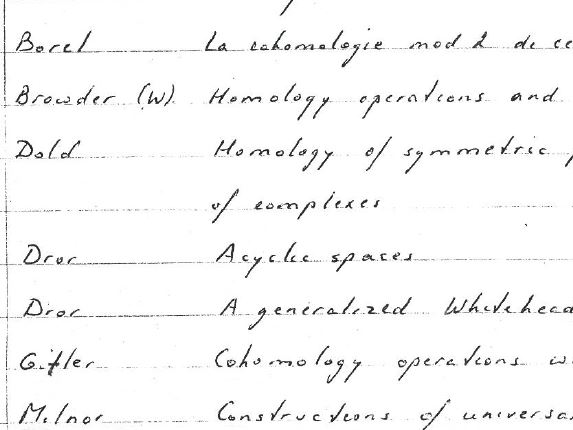 Borel La cohomologie mod 2 de ce
Browder (W). Homology operations and
Dold Homology of symmetric
of complexes
Dror Acyclic spaces
Dror A generalized Whitehea
Gitler Cohomology operations w
Milnor Constructions of universa